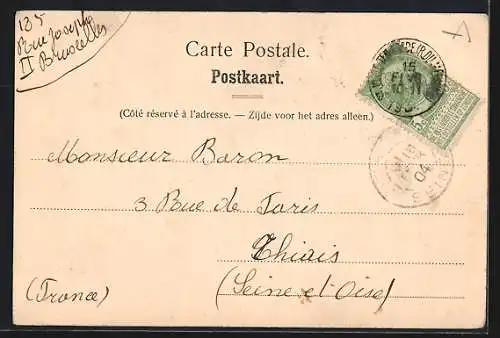 135
Rue Joseph
II Bruxelles
Carte Postale.
Postkaart.
(Côté réservé à l'adresse. — Zijde voor het adres alleen.)
Monsieur Baron
3 Rue de Paris
Thiais
(France)
(Seine-et-Oise)
15
04
SEINE